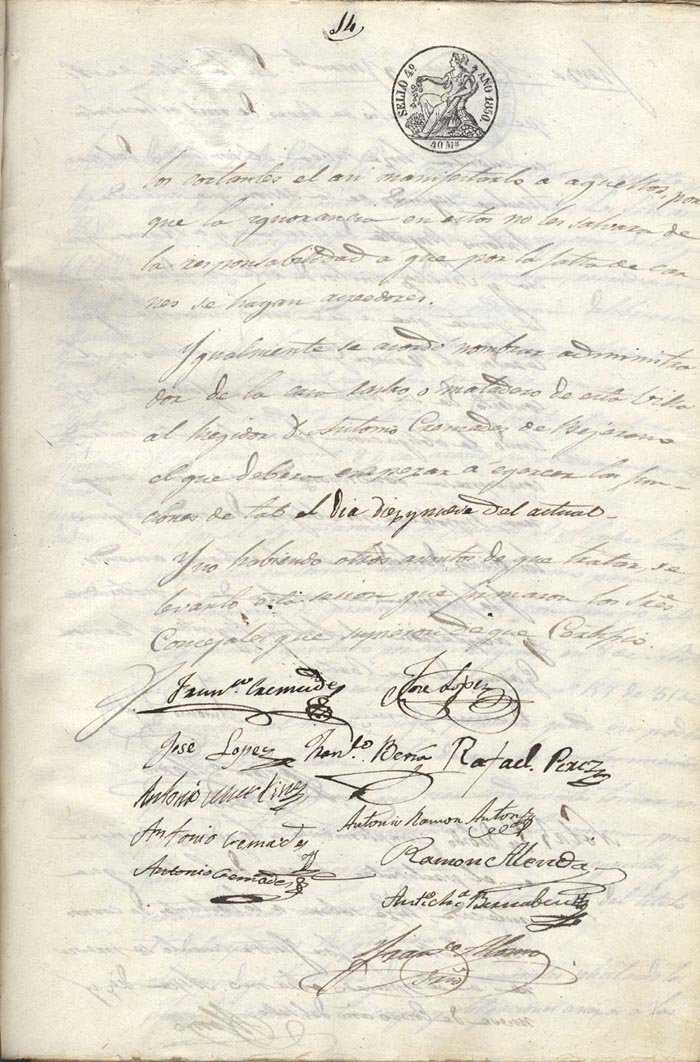 14
SELLO 4º AÑO 1850.
40 Ms
los cortantes el ari manifestarlo a aquellos, por
que la ignorancia en estos no les salvara de
la responsabilidad a que por la falta de car
nes se hagan acreedores.
Igualmente se acordó nombrar administra
dor de la casa rastro o matadero de esta Villa
al Regidor D. Antonio Cremades de Bejarano
el que debera empezar a egercer las fun-
ciones de tal el dia diez y nueve del actual.
Y no habiendo otros asuntos de que tratar, se
levantó esta sesion que firmaron los Sres
Concejales que supieron de que Certifico.
Franco Cremades
José Lopez
José Lopez Franco Beria Rafael Perez
Antonio Martinez
Antonio Ramon Anton
Antonio Cremades
Ramon Alenda
Antonio Cremades
Anto Bernabeu
Franco Alamo
Srio